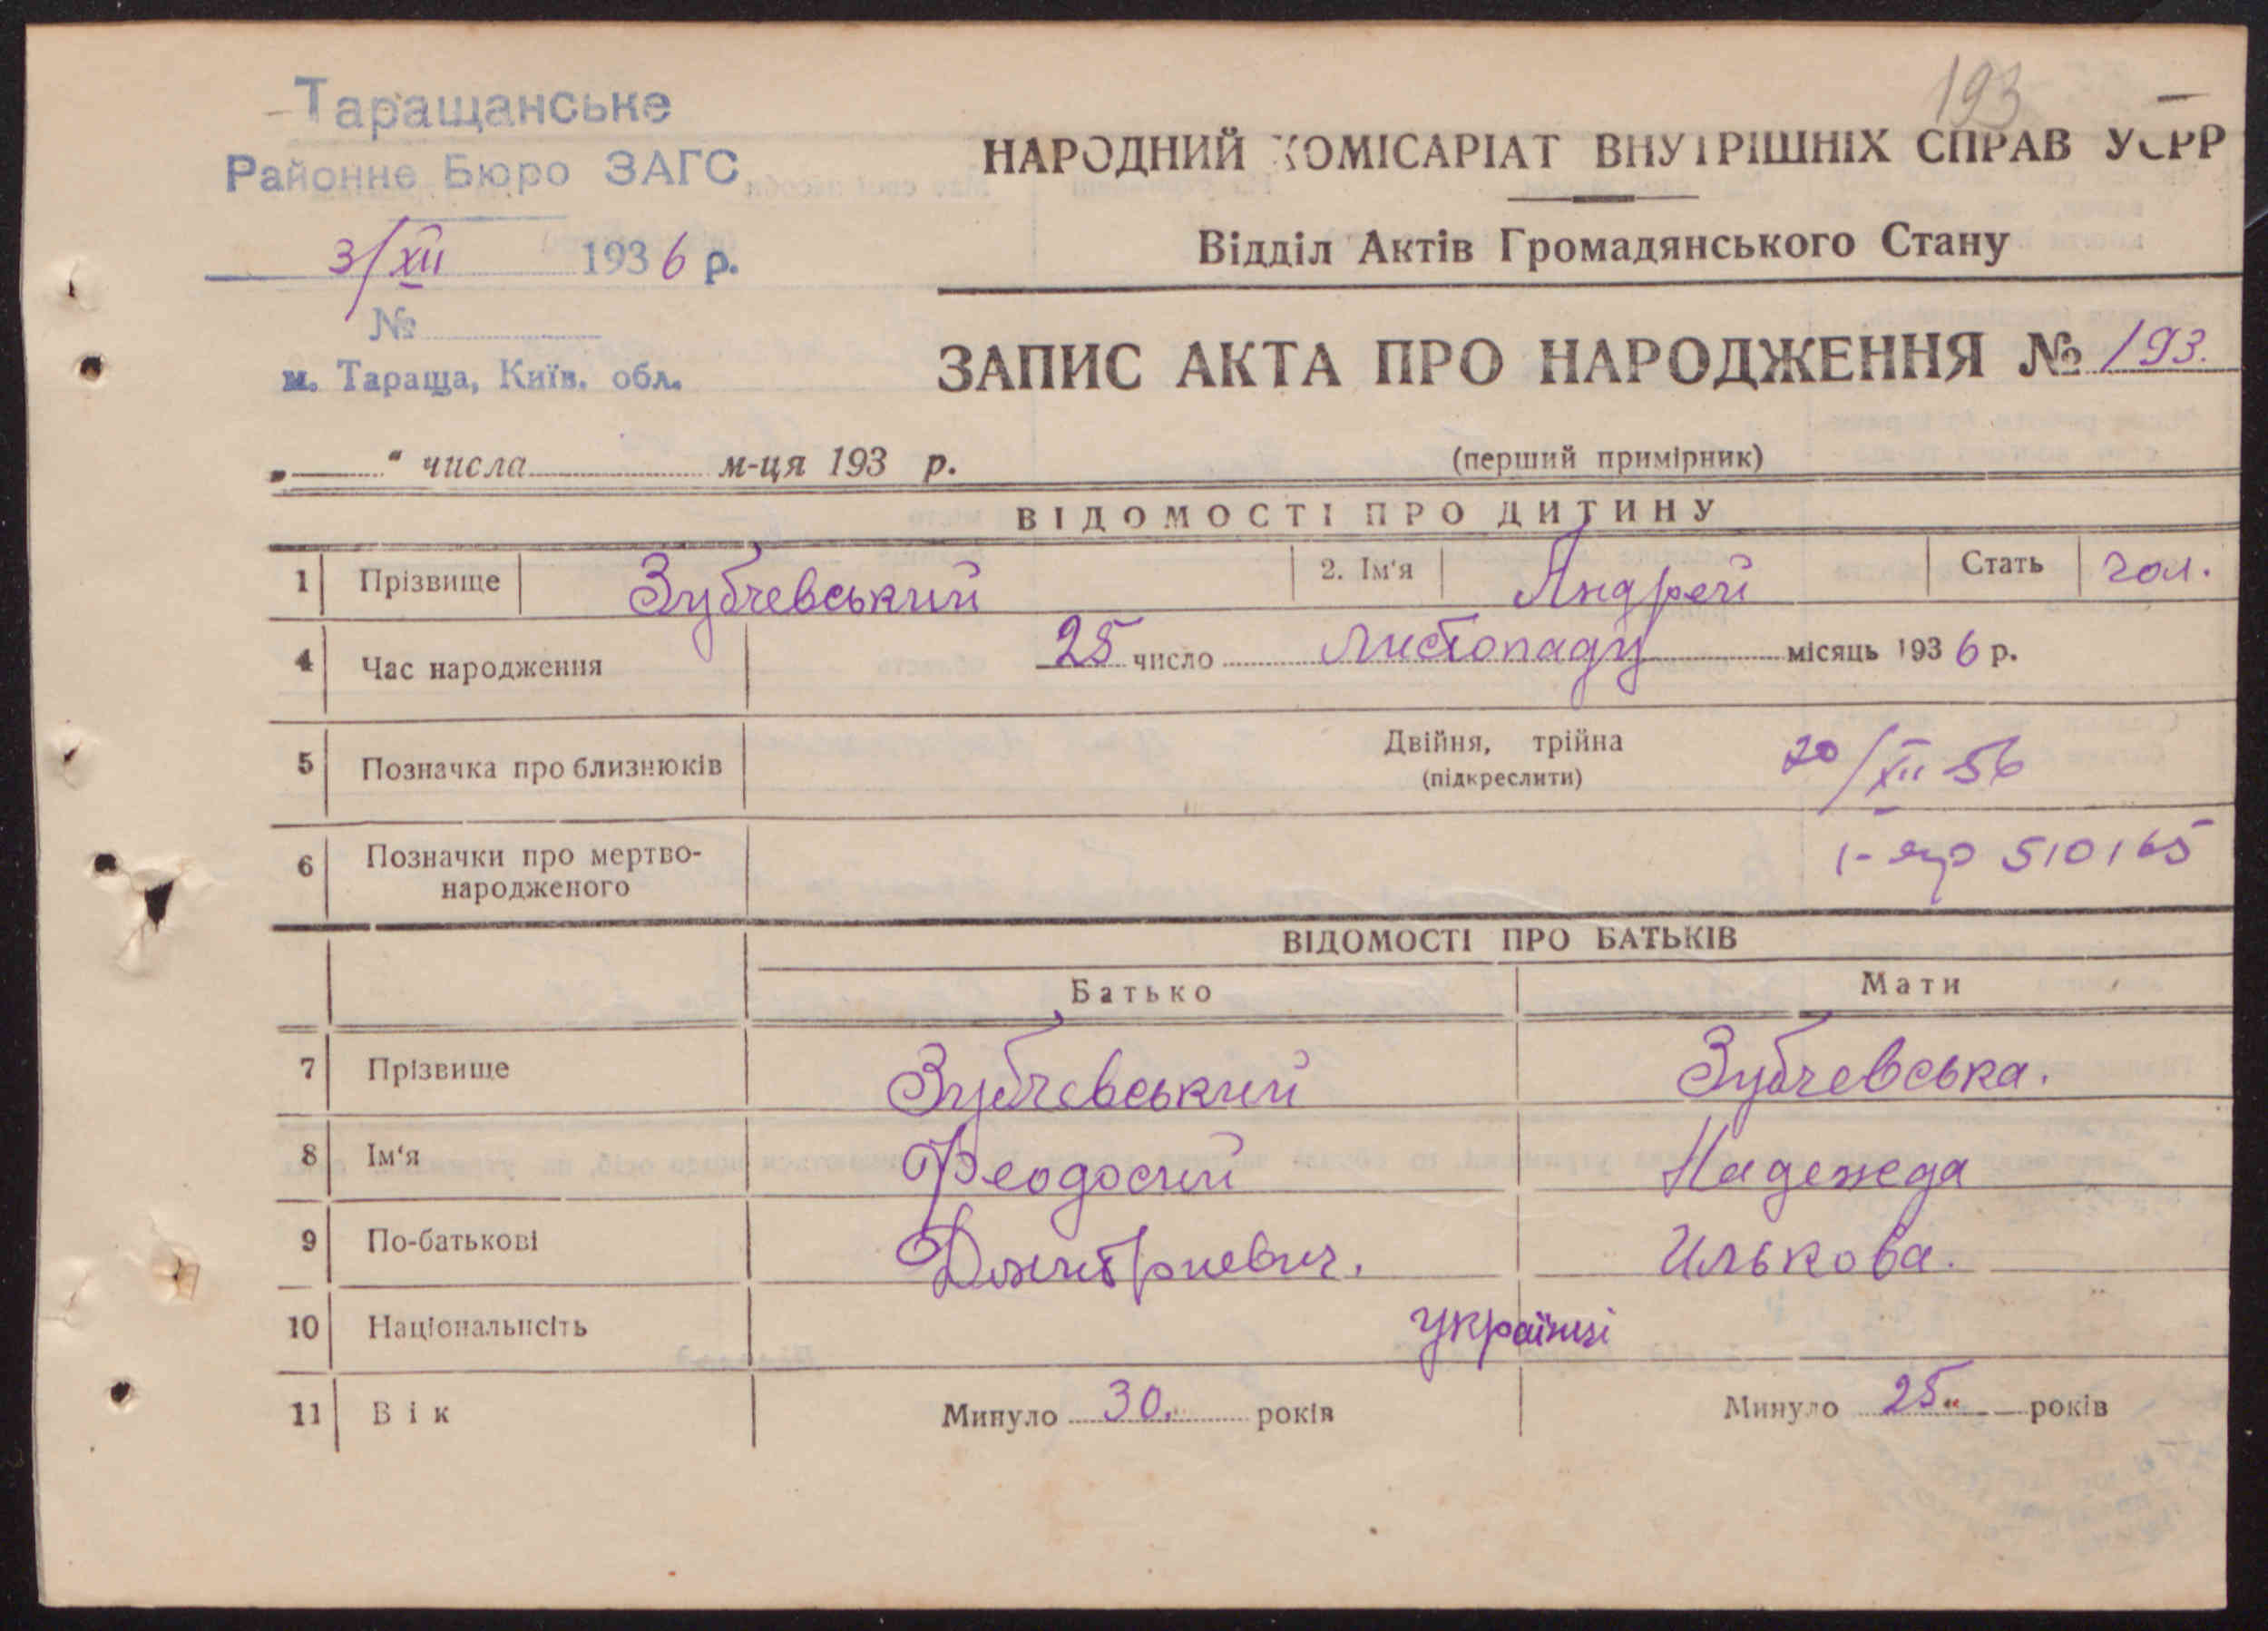 193
Таращанське
Районне Бюро ЗАГС
3/XII 1936 р.
№
м. Тараща, Київ. обл.
НАРОДНИЙ КОМІСАРІАТ ВНУТРІШНІХ СПРАВ УСРР
Відділ Актів Громадянського Стану
ЗАПИС АКТА ПРО НАРОДЖЕННЯ № 193.
„ “ числа м-ця 193 р.
(перший примірник)
ВІДОМОСТІ ПРО ДИТИНУ
1 Прізвище Зубчевський 2. Ім'я Андрей Стать чол.
4 Час народження 25 число Листопаду місяць 1936 р.
5 Позначка про близнюків Двійня, трійна
(підкреслити)
20/XII 56
6 Позначки про мертво-
народженого
510165
ВІДОМОСТІ ПРО БАТЬКІВ
Батько Мати
7 Прізвище Зубчевський Зубчевська.
8 Ім'я Феодосий Надежда
9 По-батькові Дмитриевич. Илькова.
10 Національнсіть українці
11 Вік Минуло 30. років Минуло 25 років